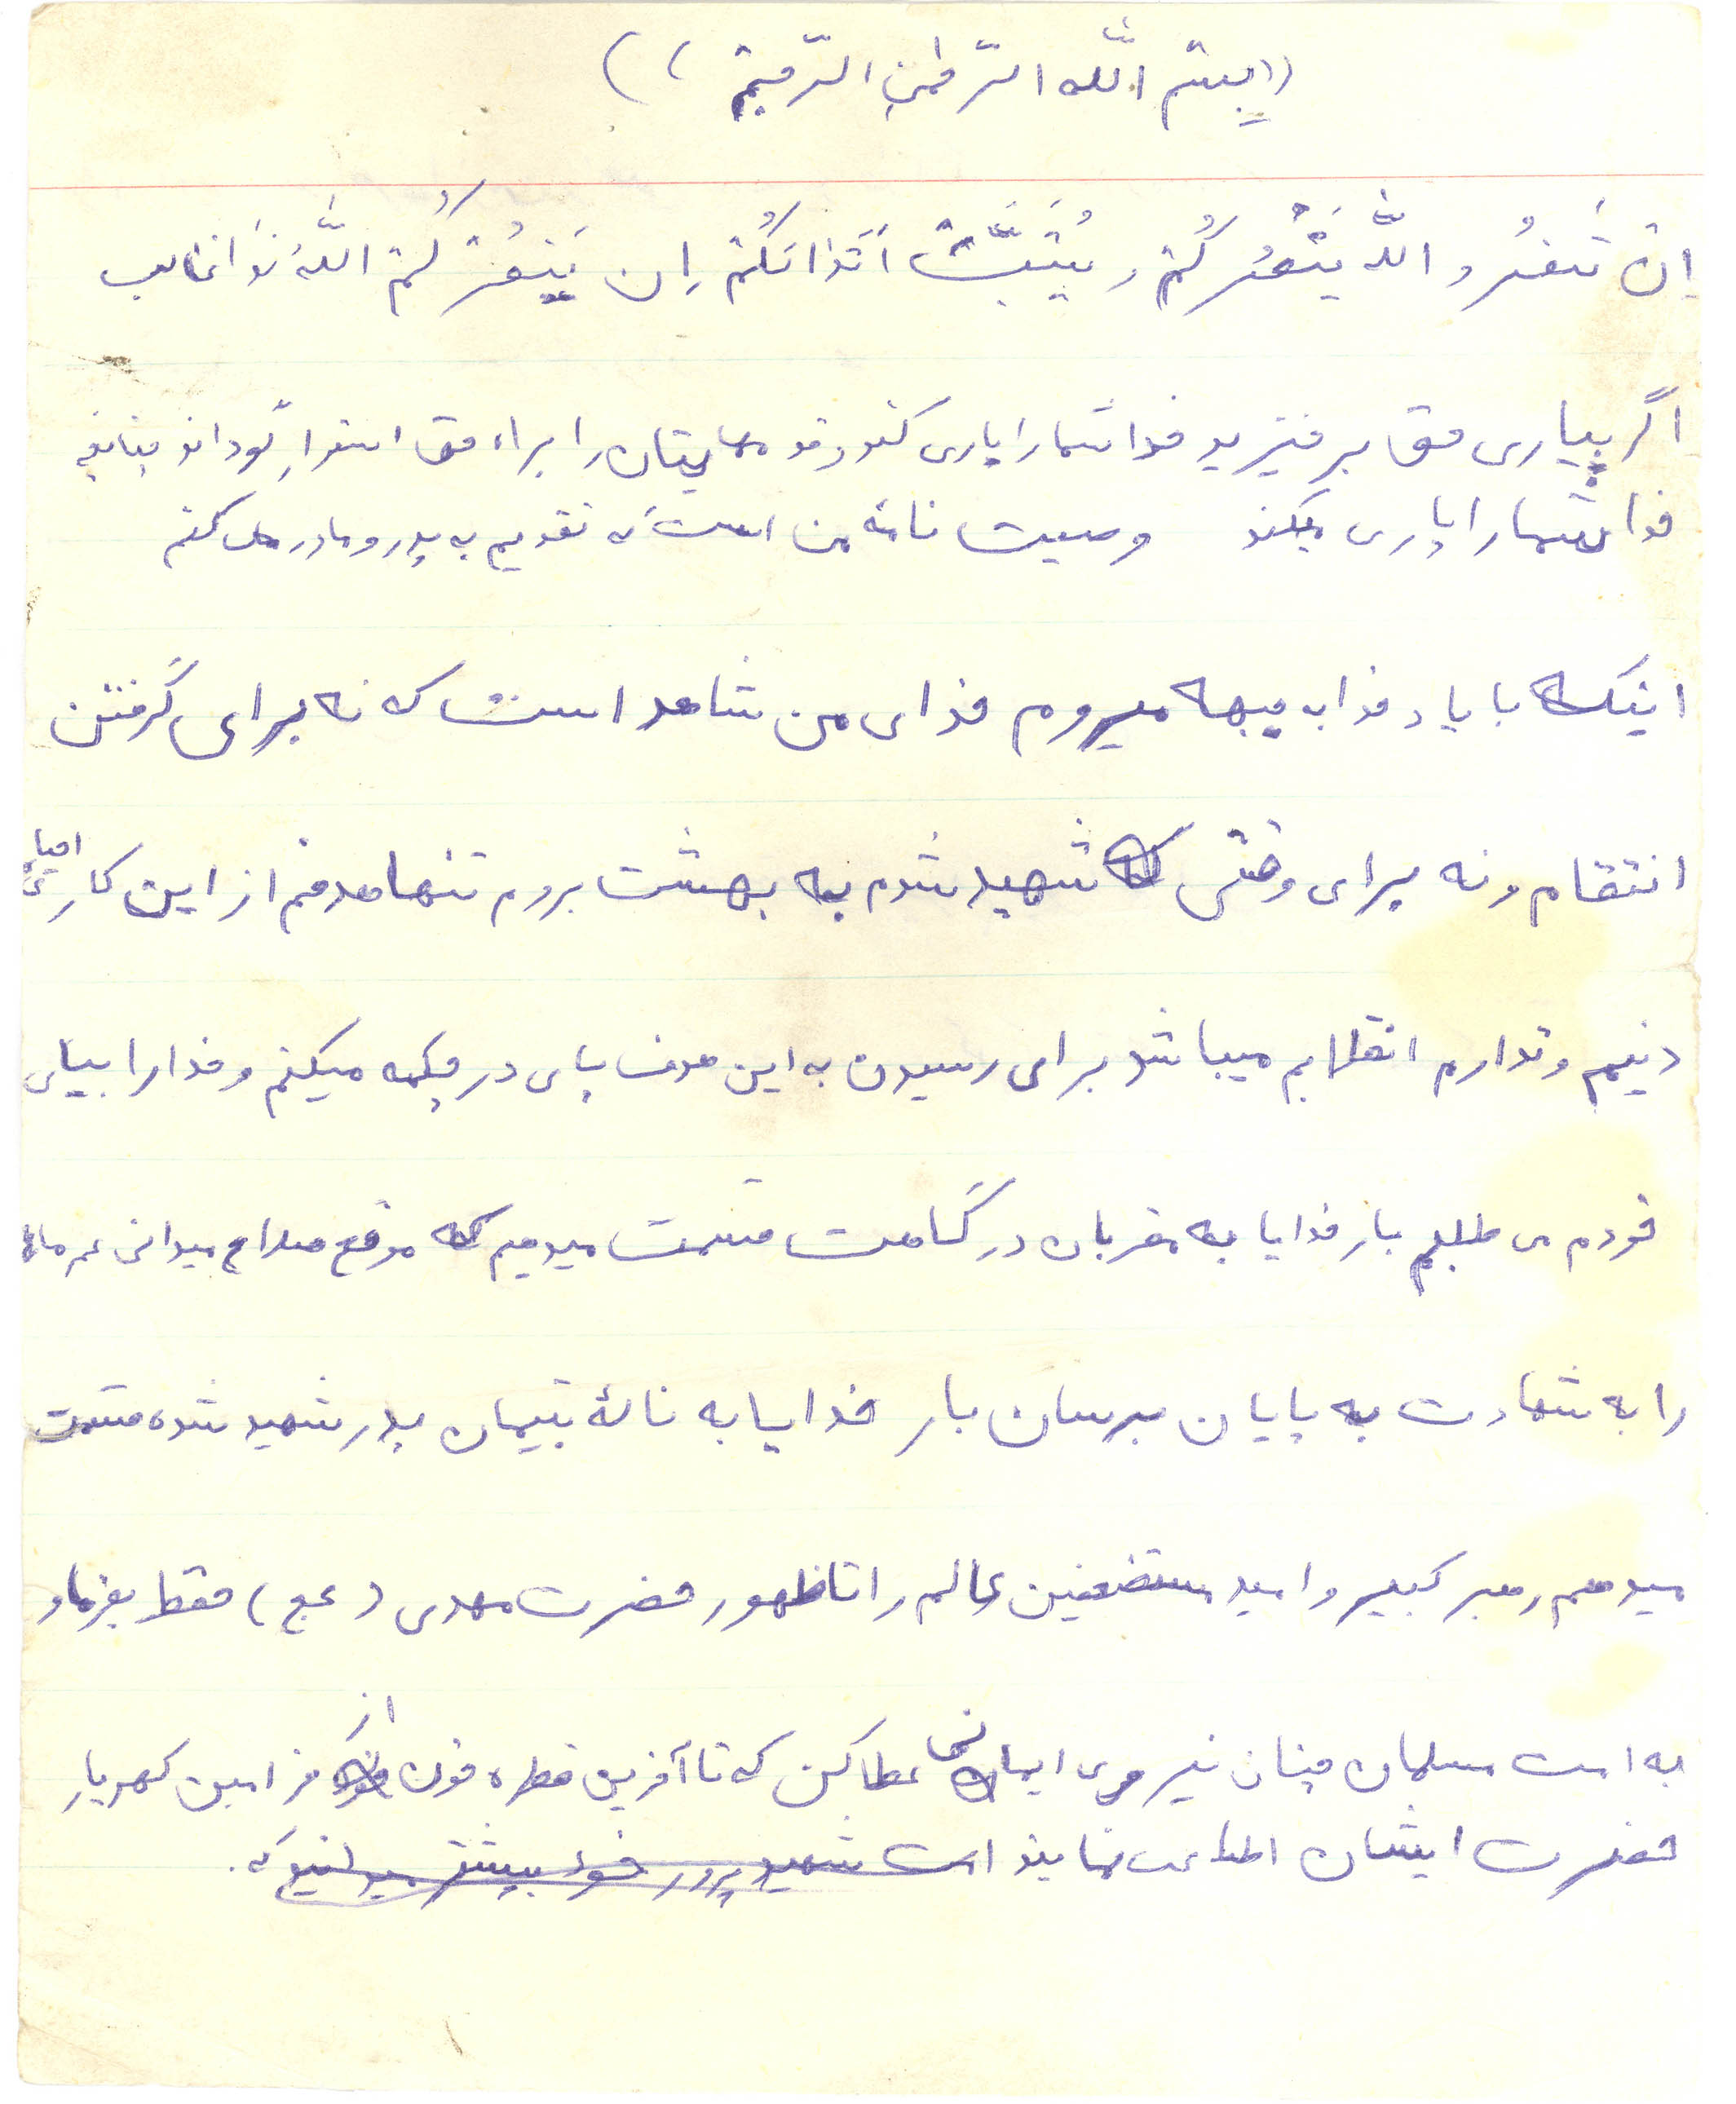 ((بِسْمِ اللّه الرّحمنِ الرّحیم))
اِنْ تَنصُرو اللّهَ یَنْصُرکُمْ و یُثَبِّتْ اَقْدامَکُمْ اِن یَنصُرْکُمُ اللّهُ فَلا غالب
اگر بیاری حق برخیزید خدا شما را یاری کند و قدمهایتان را براه حق استوار گرداند چنانچه
خدا شما را یاری بکند وصیت نامه من است که تقدیم به پدر و مادر می کنم
اینکه با یاد خدا به جبهه میروم خدای من شاهد است که نه برای گرفتن
انتقام و نه برای وقتی شهید شدم به بهشت بروم تنها هدفم از این کار احیای
دینیم و تداوم انقلابم میباشد برای رسیدن به این هدف پای در چکمه میکنم و خدا را بیاری
خودم می طلبم بار خدایا به مقربان درگاهت قسمت میدهم که موقع صلاح میدانی عمر ما
را به شهادت به پایان برسان بار خدایا به نالهٔ یتیمان پدر شهید شده قسمت
میدهم رهبر کبیر و امید مستضعفین عالم را تا ظهور حضرت مهدی (عج) حفظ بفرما و
به امت مسلمان چنان نیروی ایمانی عطا کن که تا آخرین قطره خون از فرامین گهربار
حضرت ایشان اطاعت نمایند امت شهید پرور